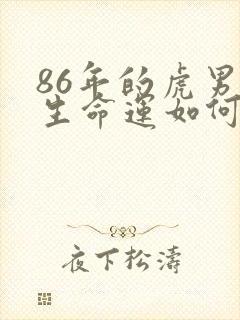 86年的虎男
生命运如何
夜下松濤